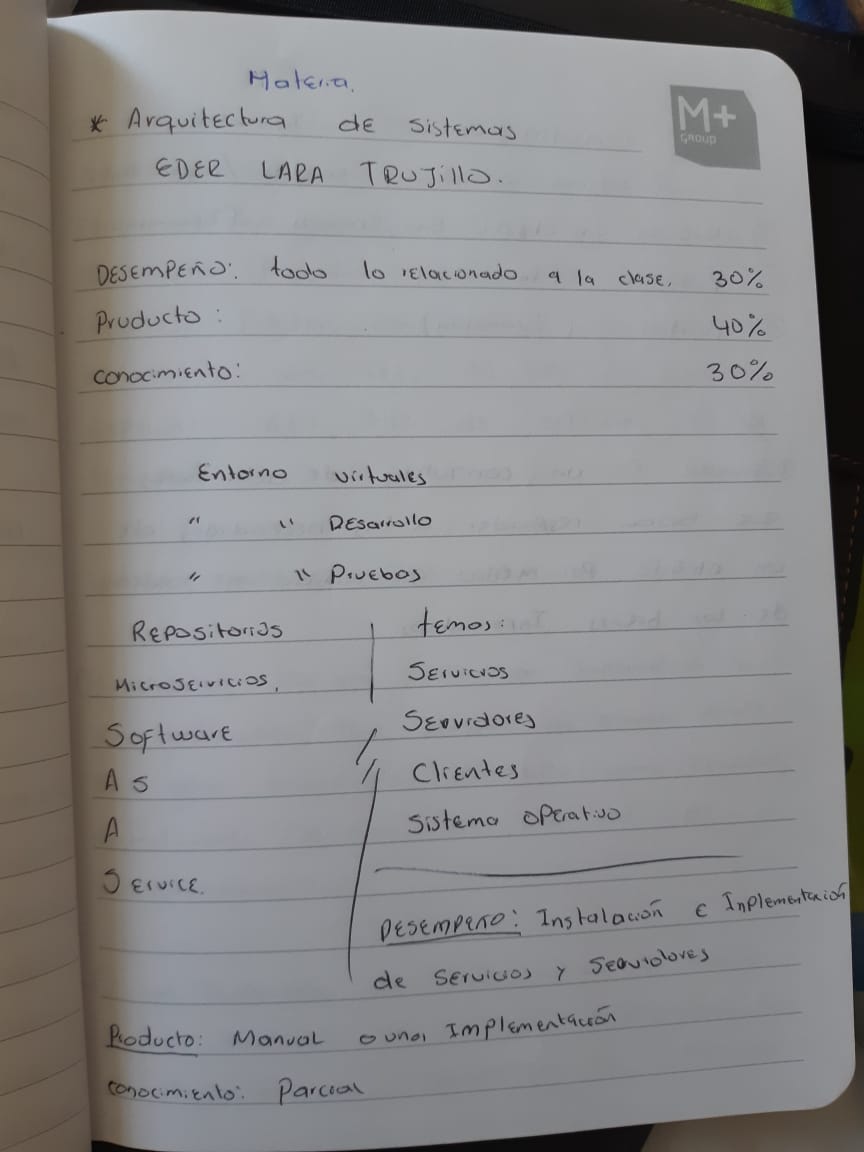 Materia.
M+
GROUP
* Arquitectura de sistemas
EDER LARA TRUJILLO.
DESEMPEÑO: todo lo relacionado a la clase. 30%
Producto: 40%
conocimiento: 30%
Entorno virtuales
" " Desarrollo
" " Pruebas
Repositorios
Microservicios,
Software
As
A
Service.
temas:
Servicios
Servidores
Clientes
Sistema operativo
DESEMPEÑO: Instalación e Inplementación
de servicios y servidores
Producto: Manual o una Implementación
conocimiento: Parcial